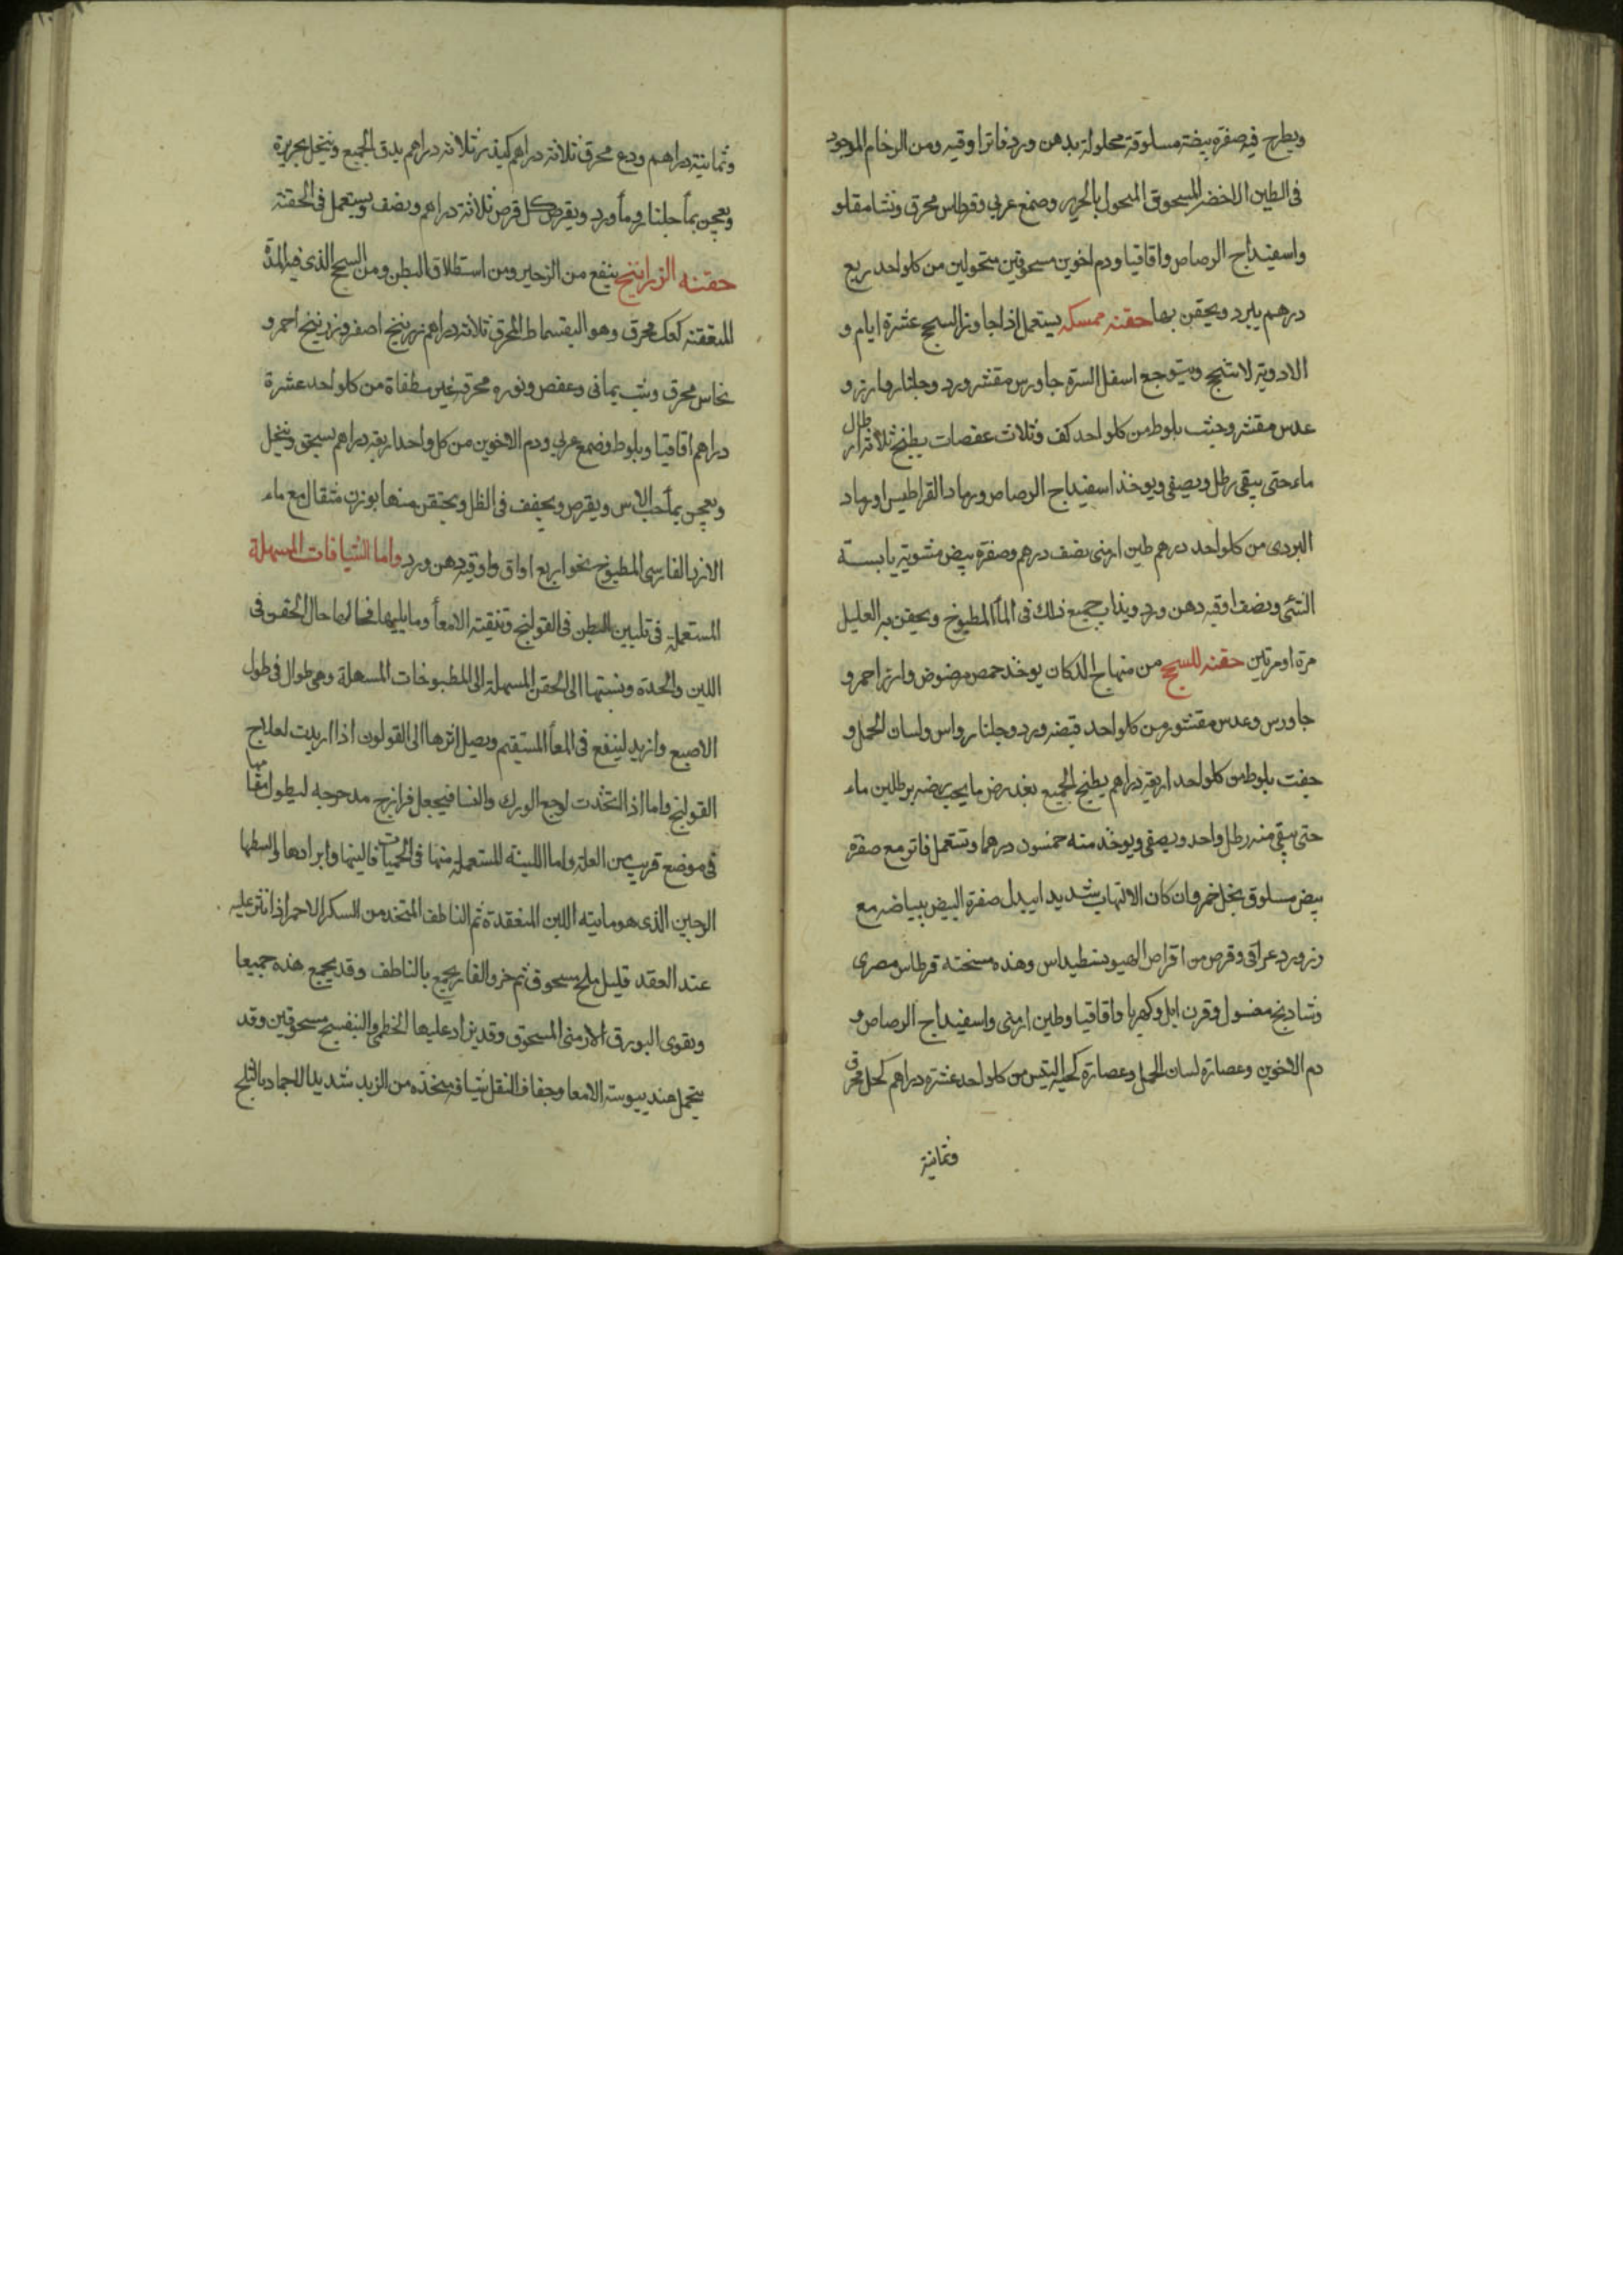 ويطرح فيه صفرة بيضة مسلوقة محلولة بدهن ورد فاترا وقيه ومن الرخام الموجود
فى الطين الاخضر المسحوق المنحول بالحرير وصمغ عربي وقرطاس محرق ونشا مقلو
واسفيداج الرصاص واقاقيا ودم اخوين مسحوقين منحولين من كلواحد ربع
درهم يبرد ويحقن بها حقنه ممسكه يستعمل اذا جاوز السحج عشرة ايام و
الادوية لا تنجح ويتوجع اسفل السرة جاورس مقشر ورد وجلنار وارز و
عدس مقشر وجفت بلوط من كلواحد كف وثلاث عفصات يطبخ بثلاثة ارطال
ماء حتى يبقى رطل ويصفى ويوخذ اسفيداج الرصاص ورماد القراطيس او رماد
البردى من كلواحد درهم طين ارمنى نصف درهم وصفرة بيض مشوية يابسة
الشئ ونصف اوقيه دهن ورد ويذاب جميع ذلك فى الماء المطبوخ ويحقن به العليل
مرة او مرتين حقنه للسحج من منهاج الدكان يوخذ حمص مرضوض وارز احمر و
جاورس وعدس مقشور من كلواحد قبضه ورد وجلنار واس ولسان الحمل و
جفت بلوط من كلواحد اربعة دراهم يطبخ الجميع بعد رض ما يجب رضه برطلين ماء
حتى يبقى منه رطل واحد ويصفى ويوخذ منه خمسون درهما وتستعمل فاتر مع صفرة
بيض مسلوق بخل خمر وان كان الالتهاب شديدا يبدل صفرة البيض ببياضه مع
وزورد عراقى وقرص من اقراص وهذه نسخته قرطاس مصرى
وشادنج مغسول وقرن ايل وكهربا واقاقيا وطين ارمنى واسفيداج الرصاص و
دم الاخوين وعصارة لسان الحمل وعصارة لحية التيس من كلواحد عشرة دراهم كحل محرق
وثمانية
وثمانية دراهم ودع محرق ثلاثة دراهم ثلاثه دراهم يدق الجميع وينخل بحريرة
ويعجن بماء جلنار وماء ورد ويقرص كل قرص ثلاثة دراهم ونصف ويستعمل فى الحقنة
حقنه الزرانيخ ينفع من الزحير ومن استطلاق البطن ومن السحج الذى فيه المدة
المتعفنه كعك محرق وهو البقسماط المحرق ثلاثه دراهم زرنيخ اصفر وزرنيخ احمر و
نحاس محرق وشب يمانى وعفص ونوره محرقه غير مطفاة من كلواحد عشرة
دراهم اقاقيا وبلوط وصمغ عربي ودم الاخوين من كل واحد اربعة دراهم يسحق وينخل
ويعجن بماء حب الاس ويقرص ويجفف فى الظل ويحتقن منها بوزن مثقال مع ماء
الارز الفارسى المطبوخ نحوا ربع اواق واوقيه دهن ورد واما الشيافات المسهلة
المستعملة فى تليين البطن فى القولنج وتنقية الامعاء وما يليها فحالها حال الحقن فى
اللين والحدة ونسبتها الى الحقن المسهلة الى المطبوخات المسهلة وهى طوال فى طول
الاصبع وازيد لينفع فى المعاء المستقيم ويصل اثرها الى القولون اذا اريدت لعلاج
القولنج واما اذا اتخذت لوجع الورك والنسا فيجعل فرازج مدحرجه ليطول مقامها
فى موضع قريب من العلة واما اللينه المستعملة منها فى الحميات فالينها وابرادها وابسطها
الرجبين الذى هو مايته اللبن المنعقدة ثم الناطف المتخذ من السكر الاحمر اذا نثر عليه
عند العقد قليل ملح مسحوق ثم خرو الفار يجمع بالناطف وقد يجمع هذه جميعا
وتقوى البورق الارمنى المسحوق وقد يزاد عليها الخطمى والبنفسج مسحوقين وقد
يتحمل عند يبوسة الامعا وجفاف الثفل شيافه متخذه من الزبد شديدا لاجماد بالثلج